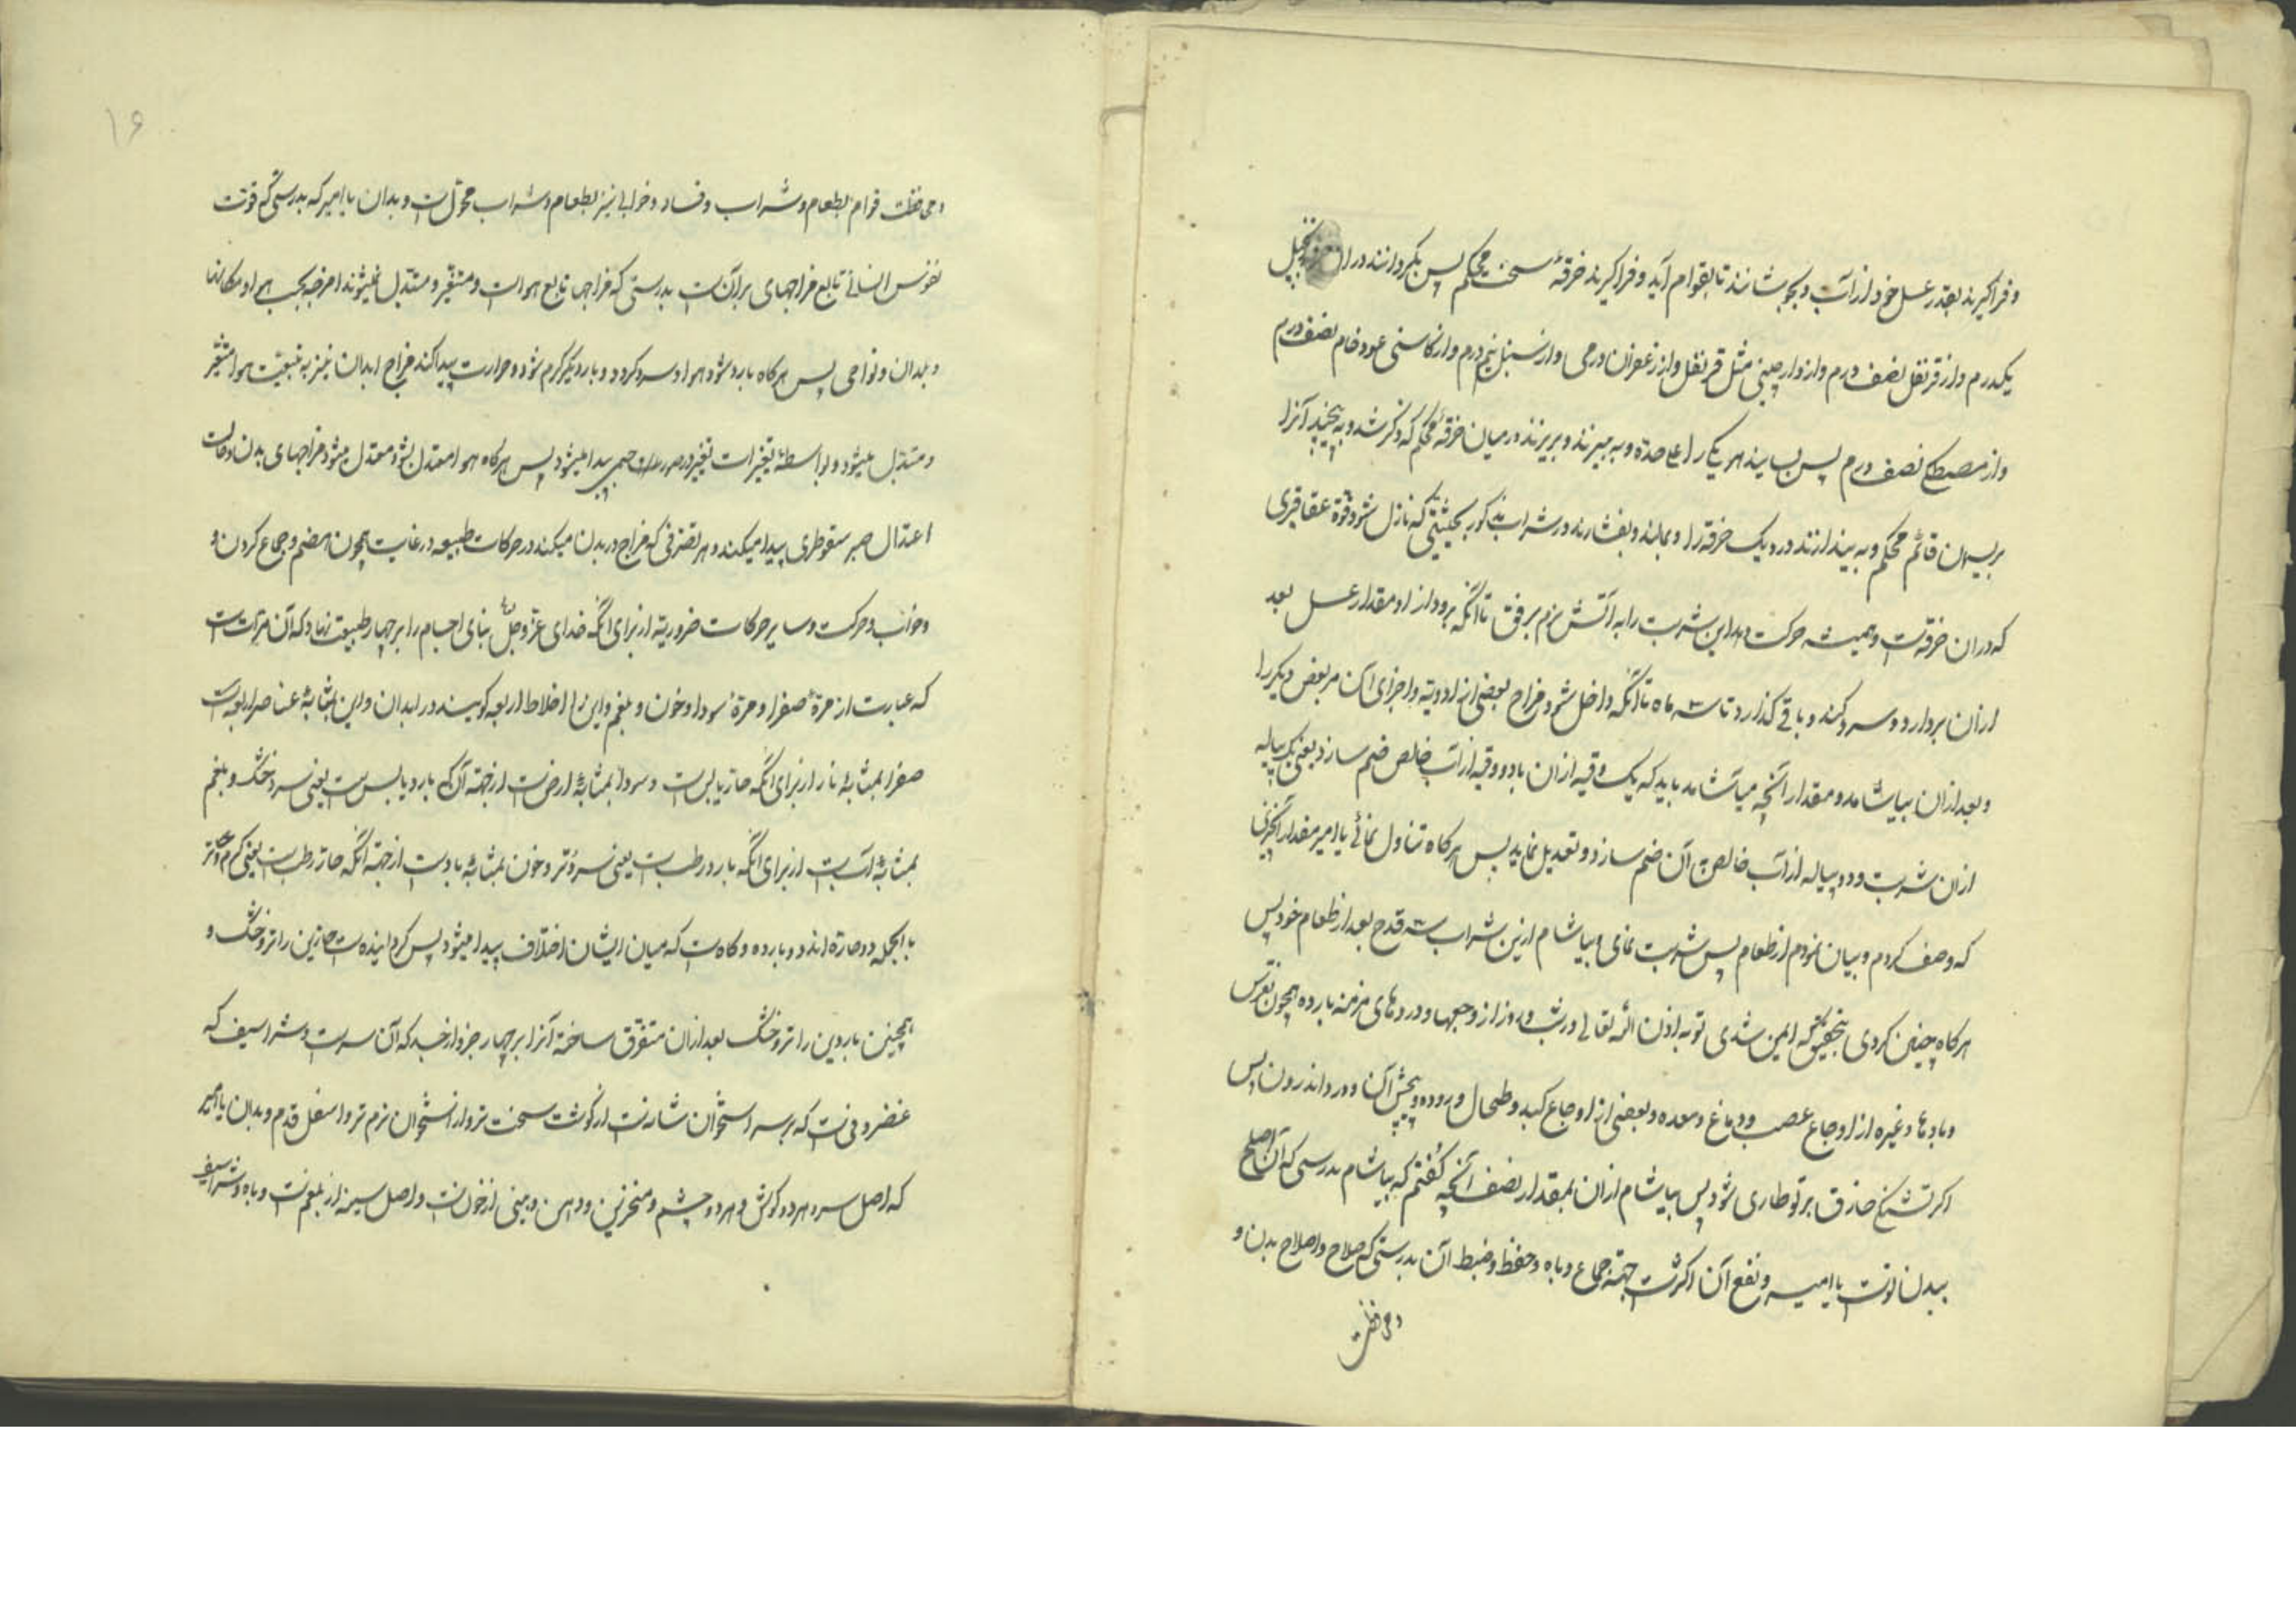 و فراگیرند بقدر عسل خود از آب و بجوشانند تا بقوام آید و فراگیرند خرقهٔ سخت محکم پس بگردانند در آن زنجبیل
یکدرم و از قرنفل نصف درم و از دارچینی مثل قرنفل و از زعفران درمی و از سنبل نیم درم و از کاسنی عود خام نصف درم
و از مصطکی نصف درم پس بسایند هر یک را علی حده و به بیزند و بریزند در میان خرقهٔ محکم که ذکر شد و به پیچند آنرا
بریسمان قائم محکم و به بیندازند در دیک خرقه را و بمالند و بفشارند در شراب مذکور بحیثیتی که نازل شود قوة عقاقیری
که در ان خرقه است و همیشه حرکت دهد این شربت را به آتش نرم برفق تا آنکه برود از او مقدار عسل بعد
از آن بردارد و سرد کند و باقی گذارد تا سه ماه تا آنکه داخل شود مزاج بعضی از ادویه و اجزای آن مر بعض دیگر را
و بعد از ان بیاشامد و مقدار آنچه میآشامد باید که یک وقیه از ان با دو وقیه از آب خالص ضم سازد یعنی یک پیاله
از ان شربت و دو پیاله از آب خالص بآن ضم سازد و تعدیل نماید پس هرکاه تناول نمائی یا امیر مقدار آنچیزی
که وصف کردم و بیان نمودم از طعام پس شربت نمای و بیاشام ازین شراب سه قدح بعد از طعام خود پس
هرکاه چنین کردی بتحقیق که ایمن شدی تو به اذن الله تعالی در شب و روز از وجعها و دردهای مزمنه بارده همچون نقرس
و بادها و غیره از اوجاع عصب و دماغ و معده و بعضی از اوجاع کبد و طحال و روده و پیچش آن و درد اندرون پس
اگر تشنگی صادق بر تو طاری شود پس بیاشام از ان بمقدار نصف آنچه گفتم که بیاشام بدرستی که آن اصلح
ببدن تو است یا امیر و نفع آن اکثر است جهة جماع و باه و حفظ و ضبط آن بدرستی که صلاح و اصلاح بدن و
و محافظت
۱۶
و محافظت قوام بطعام و شراب و فساد و خرابی نیز بطعام و شراب محول است و بدان یا امیر که بدرستی که قوت
نفوس انسانی تابع مزاجهای برآن است بدرستی که مزاجها تابع هوا است و متغیر و متبدل میشوند امزجه بحسب هوا و مکانها
و بلدان و نواحی پس هرکاه بارد شود هوا و سرد گردد و بار دیگر گرم شود و حرارت پیدا کند مزاج ابدان نیز به تبعیت هوا متغیر
و متبدل میشود و بواسطهٔ تغیرات تغییر در صور جسمی پیدا میشود پس هرکاه هوا معتدل بشود معتدل میشود مزاجهای بدن و حالت
اعتدال پیدا میکند و هر تصرفی که مزاج در بدن میکند در حرکات طبیعه در غایت همچون هضم و جماع کردن و
و خواب و حرکت و سایر حرکات ضروریه از برای آنکه خدای عز و جل بنای اجسام را بر چهار طبیعت نهاد که آن مرتان است
که عبارت از مرهٔ صفرا و مرهٔ سودا و خون و بلغم و این را اخلاط اربعه گویند در ابدان و این بمثابهٔ عناصر اربعه است
صفرا بمثابهٔ نار از برای آنکه حار یابس است و سودا بمثابهٔ ارض است از جهة آن که بارد یابس است یعنی سرد و خشک و بلغم
بمثابهٔ آب است از برای آنکه بارد رطب است یعنی سرد و تر و خون بمثابهٔ باد است از جهة آنکه حار رطب است یعنی گرم و تر
بالجمله دو حاره اند و دو بارده و گاه است که میان ایشان اختلاف پیدا میشود پس گردانیده است حارین را تر و خشک و
همچنین باردین را تر و خشک بعد از ان متفرق ساخته آنرا بر چهار جزو از جسد که آن سر است و شراسیف که
غضروفی است که بر سر استخوان شانه است از گوشت سخت تر و از استخوان نرم تر و اسفل قدم و بدان یا امیر
که اصل سر و هر دو گوش و هر دو چشم و منخرین و دهن و بینی از خون است و اصل سینه از بلغم است و باد و شراسیف